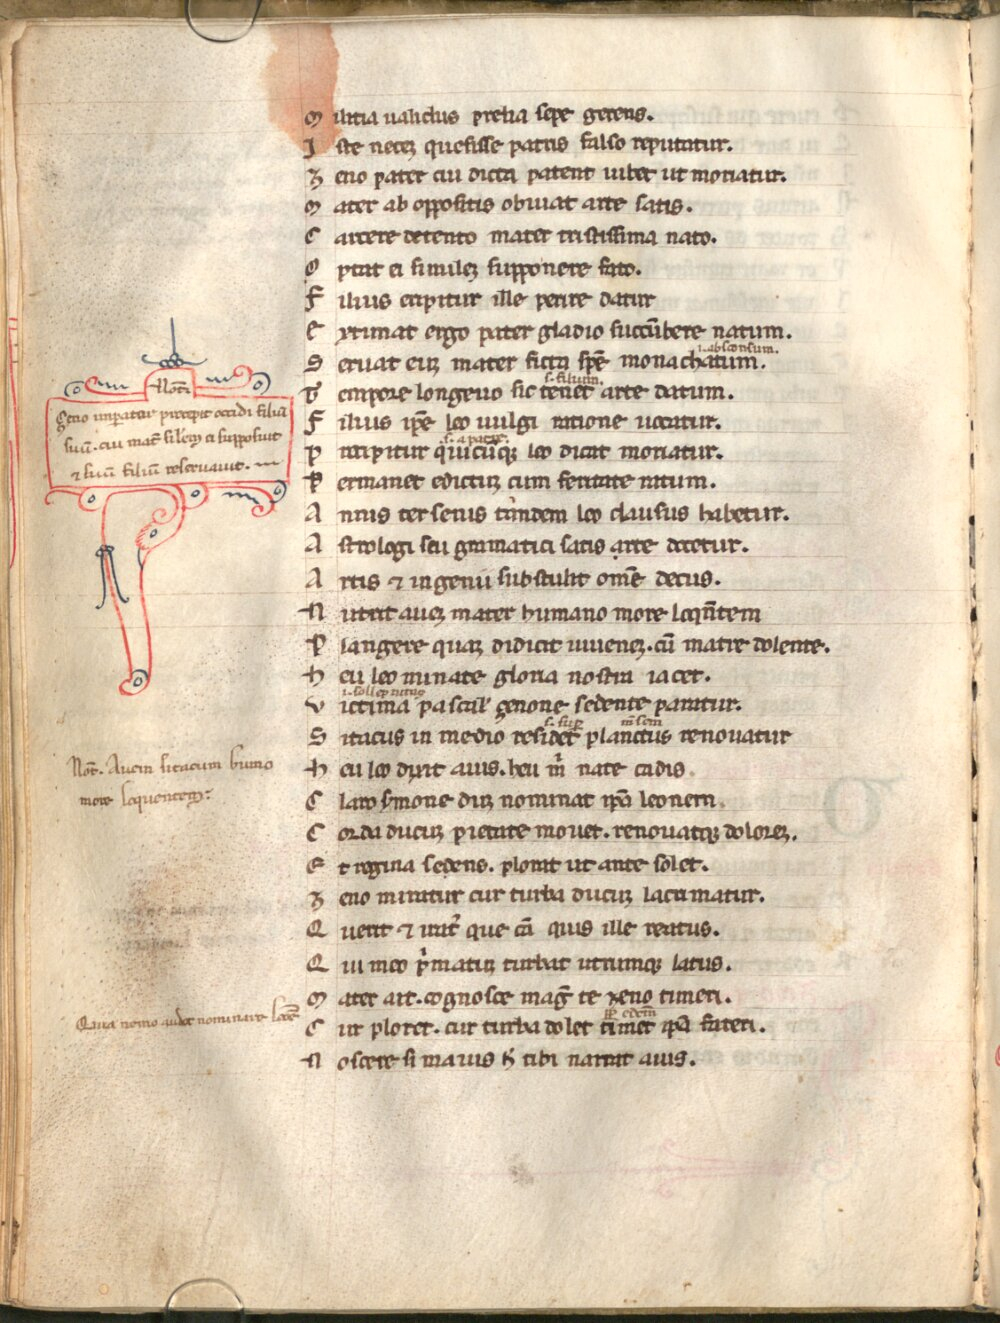 Militia ualidus prelia sepe gerens.
Iste necem quesisse patris falso reputatur.
Zeno pater cui dicta patent iubet ut moriatur.
Mater ab oppositis obuiat arte satis.
Carcere detento mater tristissima nato.
Optat ei similem supponere fato.
Filius eripitur ille perire datur
Extimat ergo pater gladio succūbere natum.
i. absconsum.
Seruat eum mater ficta spē monachatum.
s. filium.
Tempore longeuo sic tenet arte datum.
Filius ipē leo uulgi ratione uocatur.
s. a patre.
Precipitur quicūqȝ leo dicat moriatur.
Permanet edictum cum feritate ratum.
Annis ter senis tandem leo clausus habetur.
Astrologi seu gramatici satis arte docetur.
Artis ⁊ ingenii substulit omē decus.
Nutrit auem mater humano more loqūtem
Plangere quam didicit iuuenem. cū matre dolente.
Heu leo minate gloria nostra iacet.
i. sollepnitas
Victima pascal' zenone sedente paratur.
s. sup
Sitacus in medio residet planctus renouatur
Heu leo dixit auis. heu m nate cadis.
Claro sermone dum nominat ipā leonem.
Corda ducum pietate mouet. renouatqȝ dolorem.
Et regina sedens. plorat ut ante solet.
Zeno miratur cur turba ducum lacrimatur.
Querit ⁊ irat que cā quis ille reatus.
Qui meo pimatum turbat utrumqȝ latus.
Mater ait. cognosce mag te zeno timeri.
Cur ploret. cur turba dolet timet ipā fateri.
Noscere si mauis h tibi narrat auis.
Not
Zeno imperatur precepit occidi filiū
suū. cui mat silem ei supposuit
⁊ suū filiū reseruauit.
Not. Auem sitacum humo
more loquentem:
Quia nemo audet nominare leōe